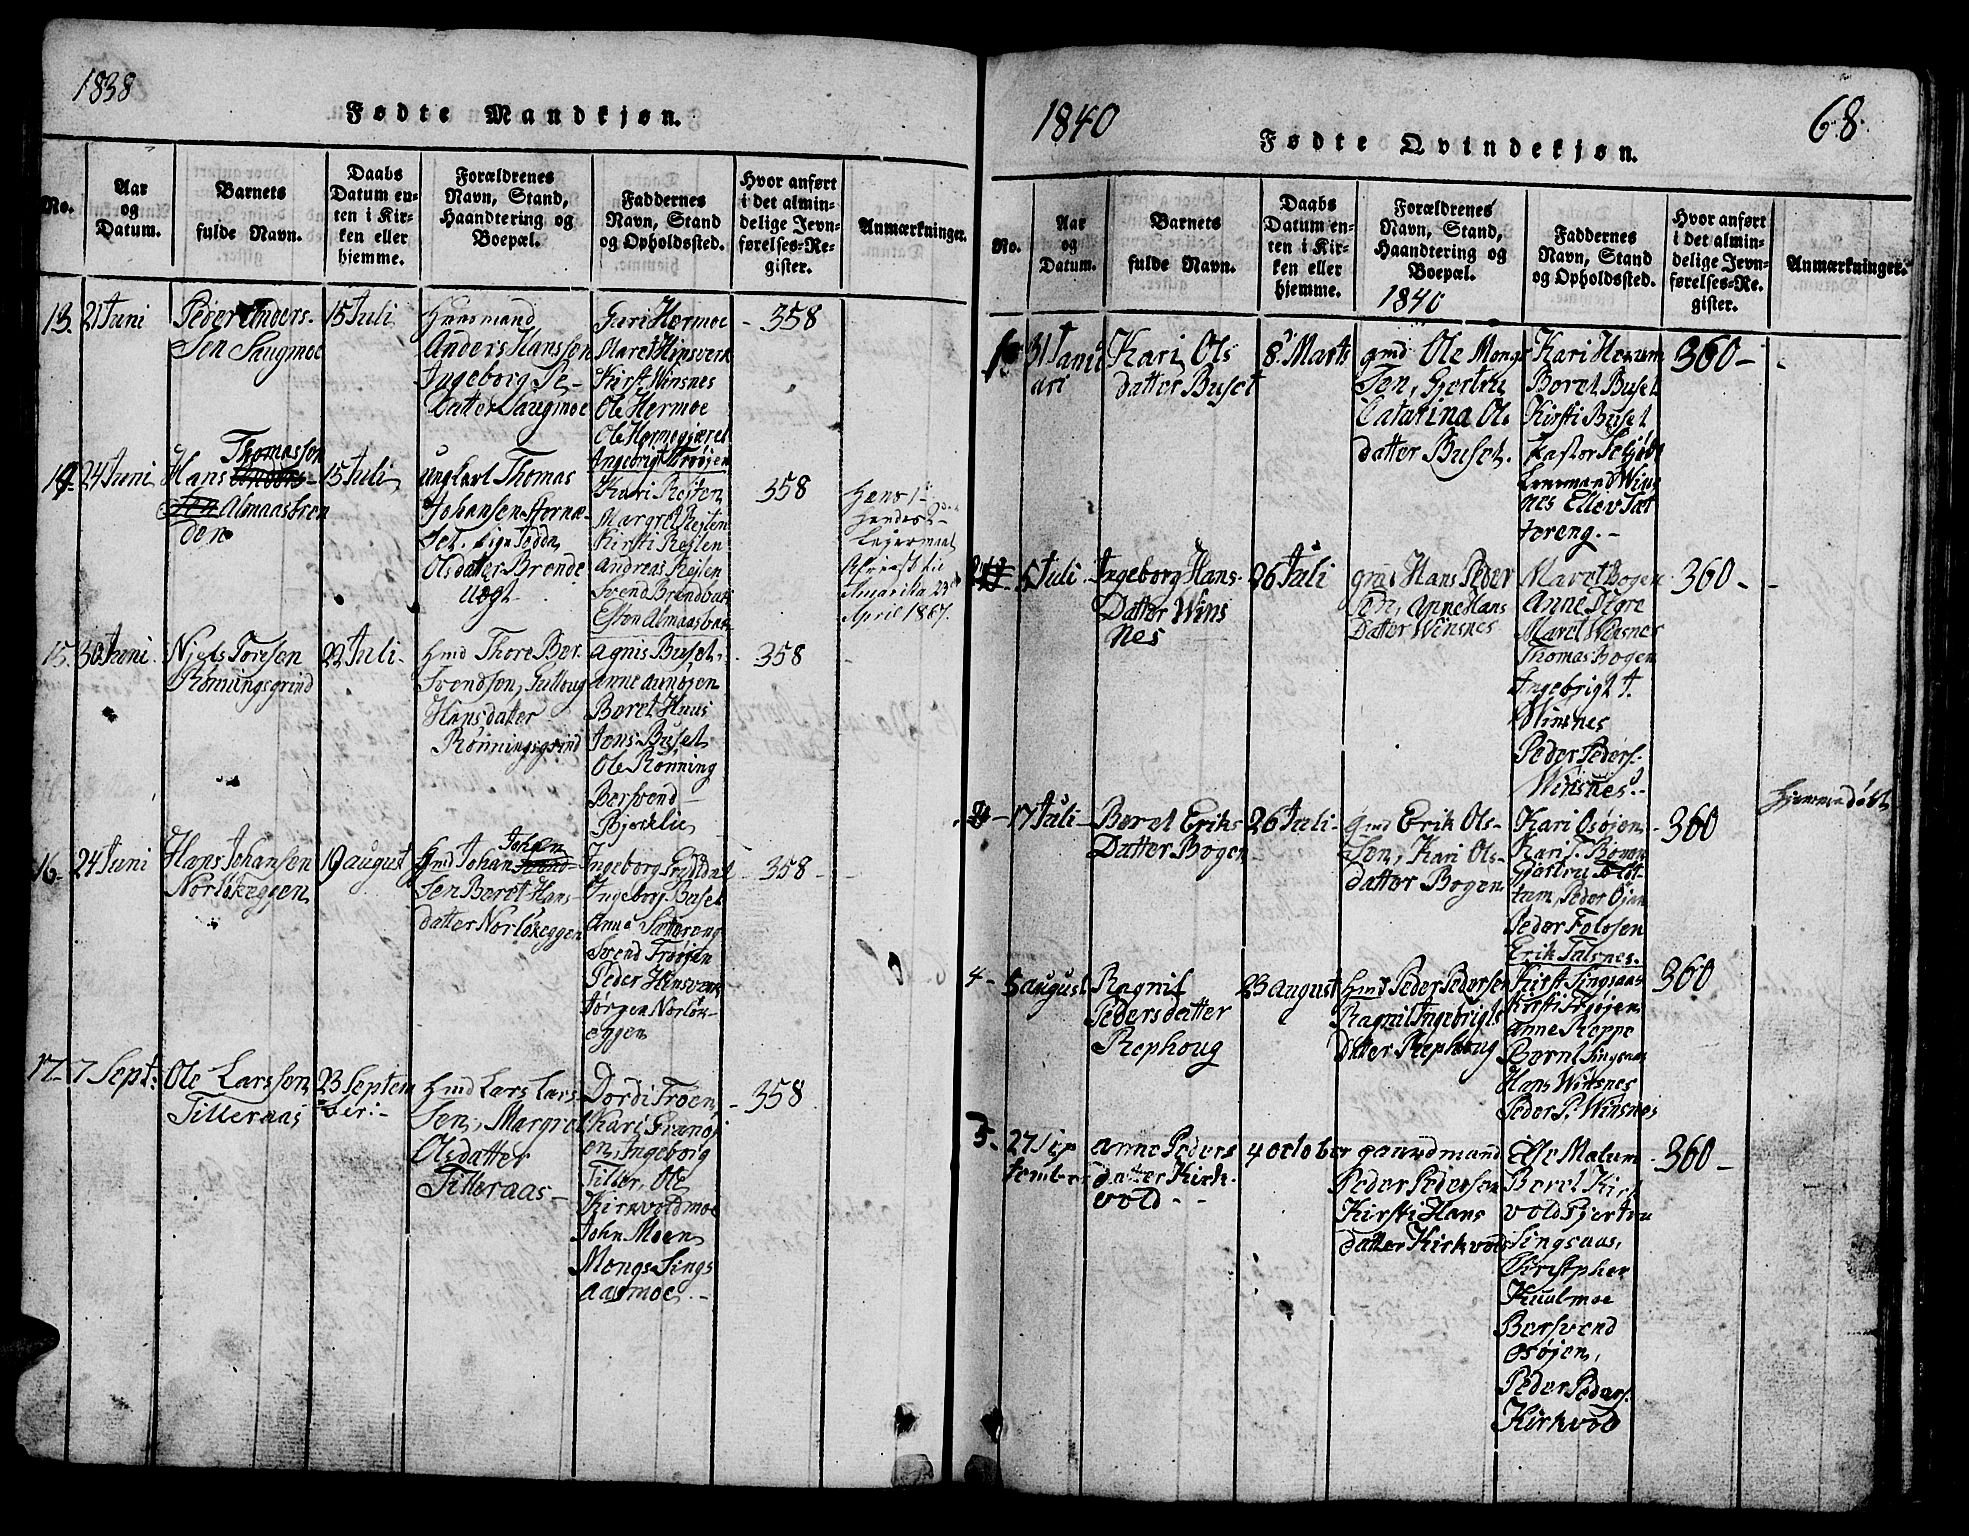 1838
Fødte Mandkjøn.
No.
Aar
og
Datum.
Barnets
fulde Navn.
Daabs
Datum en-
ten i Kir-
ken eller
hjemme.
Forældrenes
Navn, Stand,
Haandtering og
Boepæl.
Faddernes
Navn, Stand
og Opholdssted.
Hvor anført
i det almin-
delige Jevn-
førelses-Re-
gister.
Anmærkninger.
13.
21 Juni
Peder Anders-
Sen Saugmoe
15 Juli
Huusmand
Anders Hanssen
Ingeborg Pe-
Datter Saugmoe
Guri Hermoe
Maret Hinsverk
Kirst Winsnes
Ole Hermoe
Ole Hermogjæret
Ingebrigt Trøjen
358
14.
24 Juni
Thomassen
Hans Anders-
Sen Almaasbren
den
15 Juli
Ungkarl Thomas
Johansen
Olsdatter Brende
vægt
Kari Rejten
Margret Rejten
Kirsti Rejten
Andreas Rejten
Svend Brendvæk
Esten Almaasbak
358
Hans 1ste
Hendes 2det
Lejermaal
Afrejst til
Amarika 23de
April 1867.
15.
30 Juni
Niels Toresen
Rønningsgrind
22 Juli
Hmd Thore Ber-
Svendsen, Gulloug
Hansdatter
Rønningsgrind
Agnis Buset
Anne Aunøjen
Beret Huus
Jens Buset
Ole Rønning
Bersvend
Bjørklie
358
16.
24 Juni
Hans Johansen
Norløkeggen
19 august
Johan
Hmd Johan
Sen Beret Hans-
datter Norløkeggen
Ingeborg
Ingeborg Buset
Anne Sættereng
Svend Trøjen
Peder Hinsverk
Jørgen Norløk-
eggen
358
17
7 Sept:
Ole Larssen
Tilleraas
23 Septem
ber:
Hmd Lars Lars-
Sen, Margret
Olsdatter
Tilleraas
Dordi Troen,
Kari Granøj
en, Ingeborg
Tiller, Ole
Kirkvoldmoe
John Moen
Mongs Sings
aasmoe
358
1840
68.
Fødte Qvindekjøn.
No.
Aar
og
Datum.
Barnets
fulde Navn.
Daabs
Datum en-
ten i Kir-
ken eller
hjemme.
Forældrenes
Navn, Stand,
Haandtering og
Boepæl.
1840
Faddernes
Navn, Stand
og Opholdssted.
Hvor anført
i det almin-
delige Jevn-
førelses-Re-
gister.
Anmærkninger.
1
31 Janu
ari
Kari Ols
datter Buset
8 Marts
gmd Ole Mongs
Sen, Gjertru
Catarina Ols
datter Buset.
Kari Herum
Beret Buset
Kirsti Buset
Pastor Schjøtz
Lensmand Wins
nes Ellev Sæt
tereng.
360
5 Juli
Ingeborg Hans-
Datter Wins
nes
26 Juli
gmd Hans Peder
Sen, Anne Hans
Datter Winsnes
Maret Bogen
Anne Digre
Maret Winsnes
Thomas Bogen
Ingebrigt J.
Winsnes
Peder Peders.
Winsnes.
360
17 Juli
Beret Eriks
Datter Bogen
26 Juli
gmd Erik Ols-
Sen, Kari Ols-
datter Bogen
Kari Osøjen
Kari J. Bogen
Gjertru
tum, Peder Øjan
Peder Folosen
Erik Talsnes.
360
Hjemmedøbt
4
5 august
Ragnil
Pedersdatter
Rephoug
23 august
Hmd Peder Pedersen
Ragnil Ingebrigts
Datter Rephoug
Kirst Singsaas
Kirsti Trøjen
Anne Reppe
Bernt Singsaas
Hans Winsnes
Peder P. Winsnes
360
5.
27 Sep
tember
Anne Peders
datter Kirk-
vold
4 october
gaardmand
Peder Pedersen
Kirsti Hans
datter Kirkvold
Else Malum
Beret Kirk
vold Gjertru
Singsaas,
Christpher
Kuulmoe
Bersvend
Osøjen,
Peder Peders.
Kirkvold
360